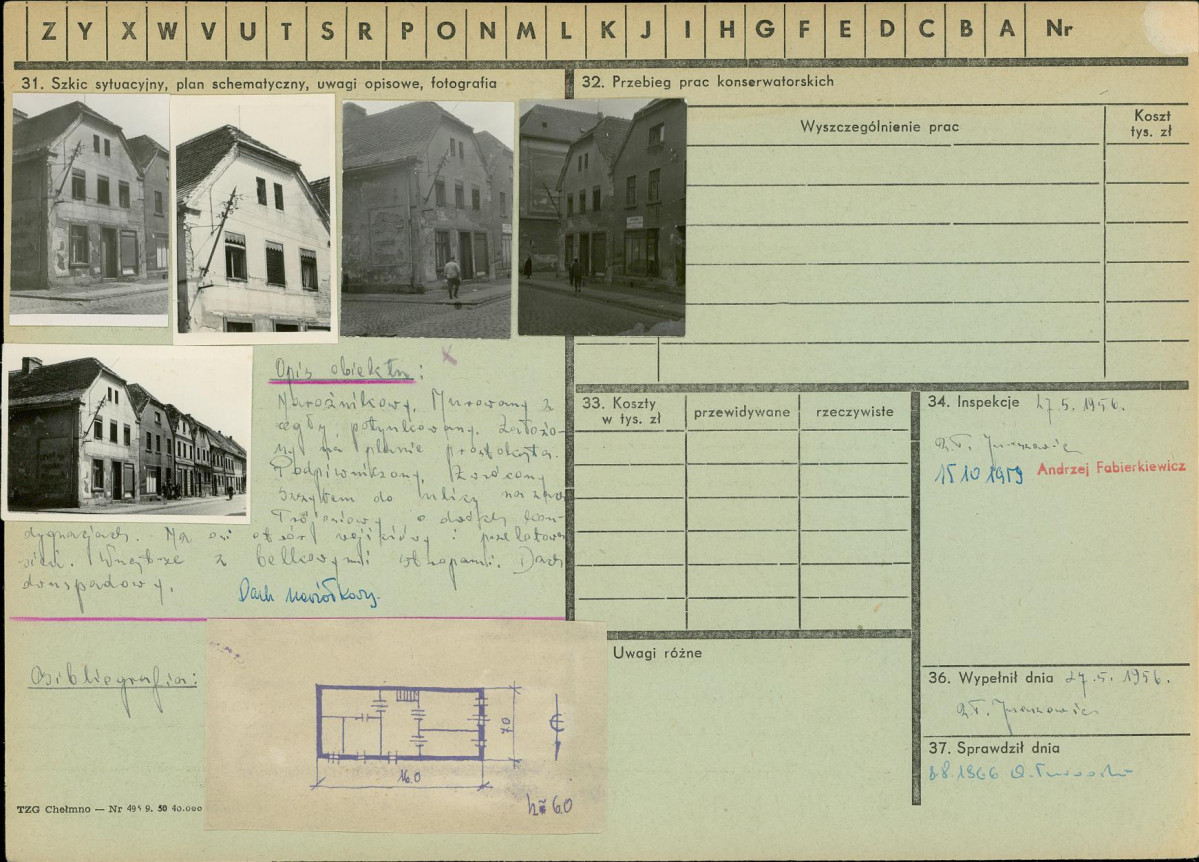 Z Y X W V U T S R P O N M L K J I H G F E D C B A Nr
31. Szkic sytuacyjny, plan schematyczny, uwagi opisowe, fotografia
Opis obiektu:
Narożnikowy. Murowany z
cegły, potynkowany. Założo-
ny na planie prostokąta.
Podpiwniczony. Zwrócony
szczytem do ulicy
Trójosiowy o dwóch kon-
dygnacjach. Na osi otwór wejściowy i
Wnętrze z belkowymi stropami. Dach
dwuspadowy.
Dach naciółkowy.
Bibliografia:
16.0
7.0
h = 6.0
TZG Chełmno — Nr 9. 50 40.000
32. Przebieg prac konserwatorskich
Wyszczególnienie prac
Koszt
tys. zł
33. Koszty
w tys. zł
przewidywane
rzeczywiste
Uwagi różne
34. Inspekcje 27.5.1956.
15 10 1959 Andrzej Fabierkiewicz
36. Wypełnił dnia 27.5.1956.
37. Sprawdził dnia
8.8.1966